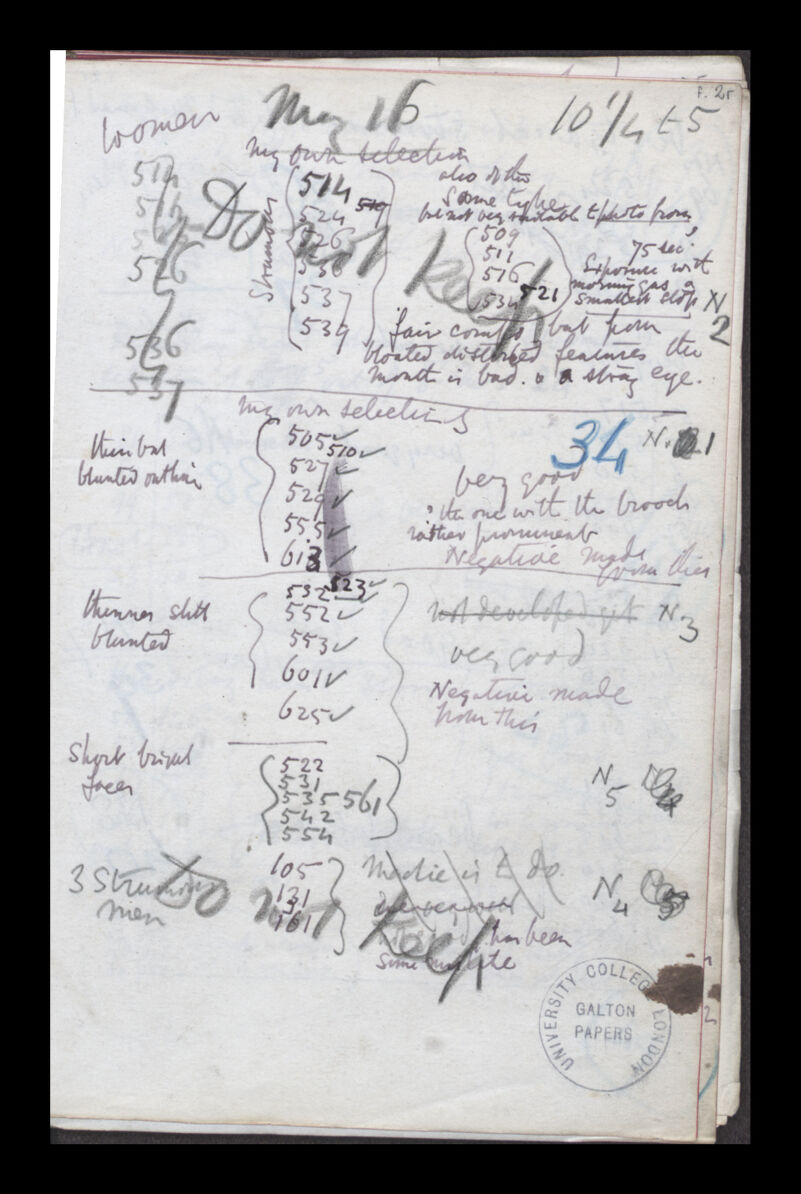 f. 2r
Women May 16 10 1/4 t 5
my own selection
514
516
526
536
537
Do not keep
Strumous
514
524 519
526
536
537
534
also of the
same type
but not very suitable t photo from
509
511
516
534 521
75 sec.
Exposure with
morning gas &
smallest stop N
2
fair comps but from
bloated distorted features the
mouth is bad. & a stray eye.
my own selections
thin but
blunted outline
505 ✓
510 ✓
527 ✓
529 ✓
555 ✓
613 ✓
34 N. 1
very good
the one with the brooch
rather prominent
Negative made
from this
thinner still
blunted
532 523 ✓
552 ✓
553 ✓
601 ✓
625 ✓
not developed yet N3
very good
Negative made
from this
Short
faces
522
531
535 561
542
554
N
5
3 Strumous
men
105
131
161
Do not keep
is t do
has been
some
N
4
UNIVERSITY COLLEGE LONDON
GALTON
PAPERS